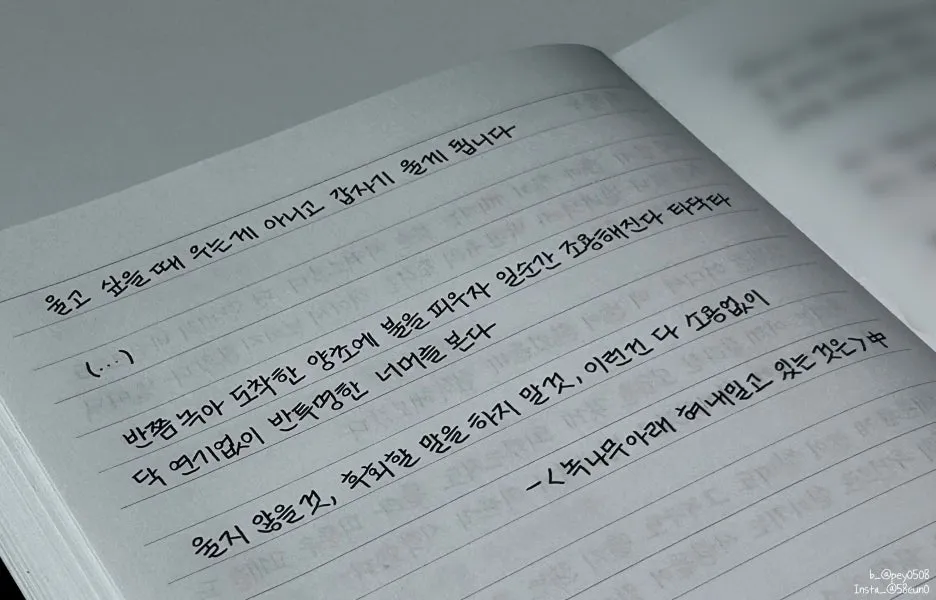 울고 싶을 때 우는게 아니고 갑자기 울게 됩니다
(...)
반쯤 녹아 도착한 양초에 불을 피우자 일순간 조용해진다 타닥타
닥 연기없이 반투명한 너머를 본다
울지 않을 것, 후회할 말을 하지 말 것, 이런건 다 소용없이
-<녹나무 아래 혀 내밀고 있는 것은> 中
b_@pey0508
Insta_@58eun0